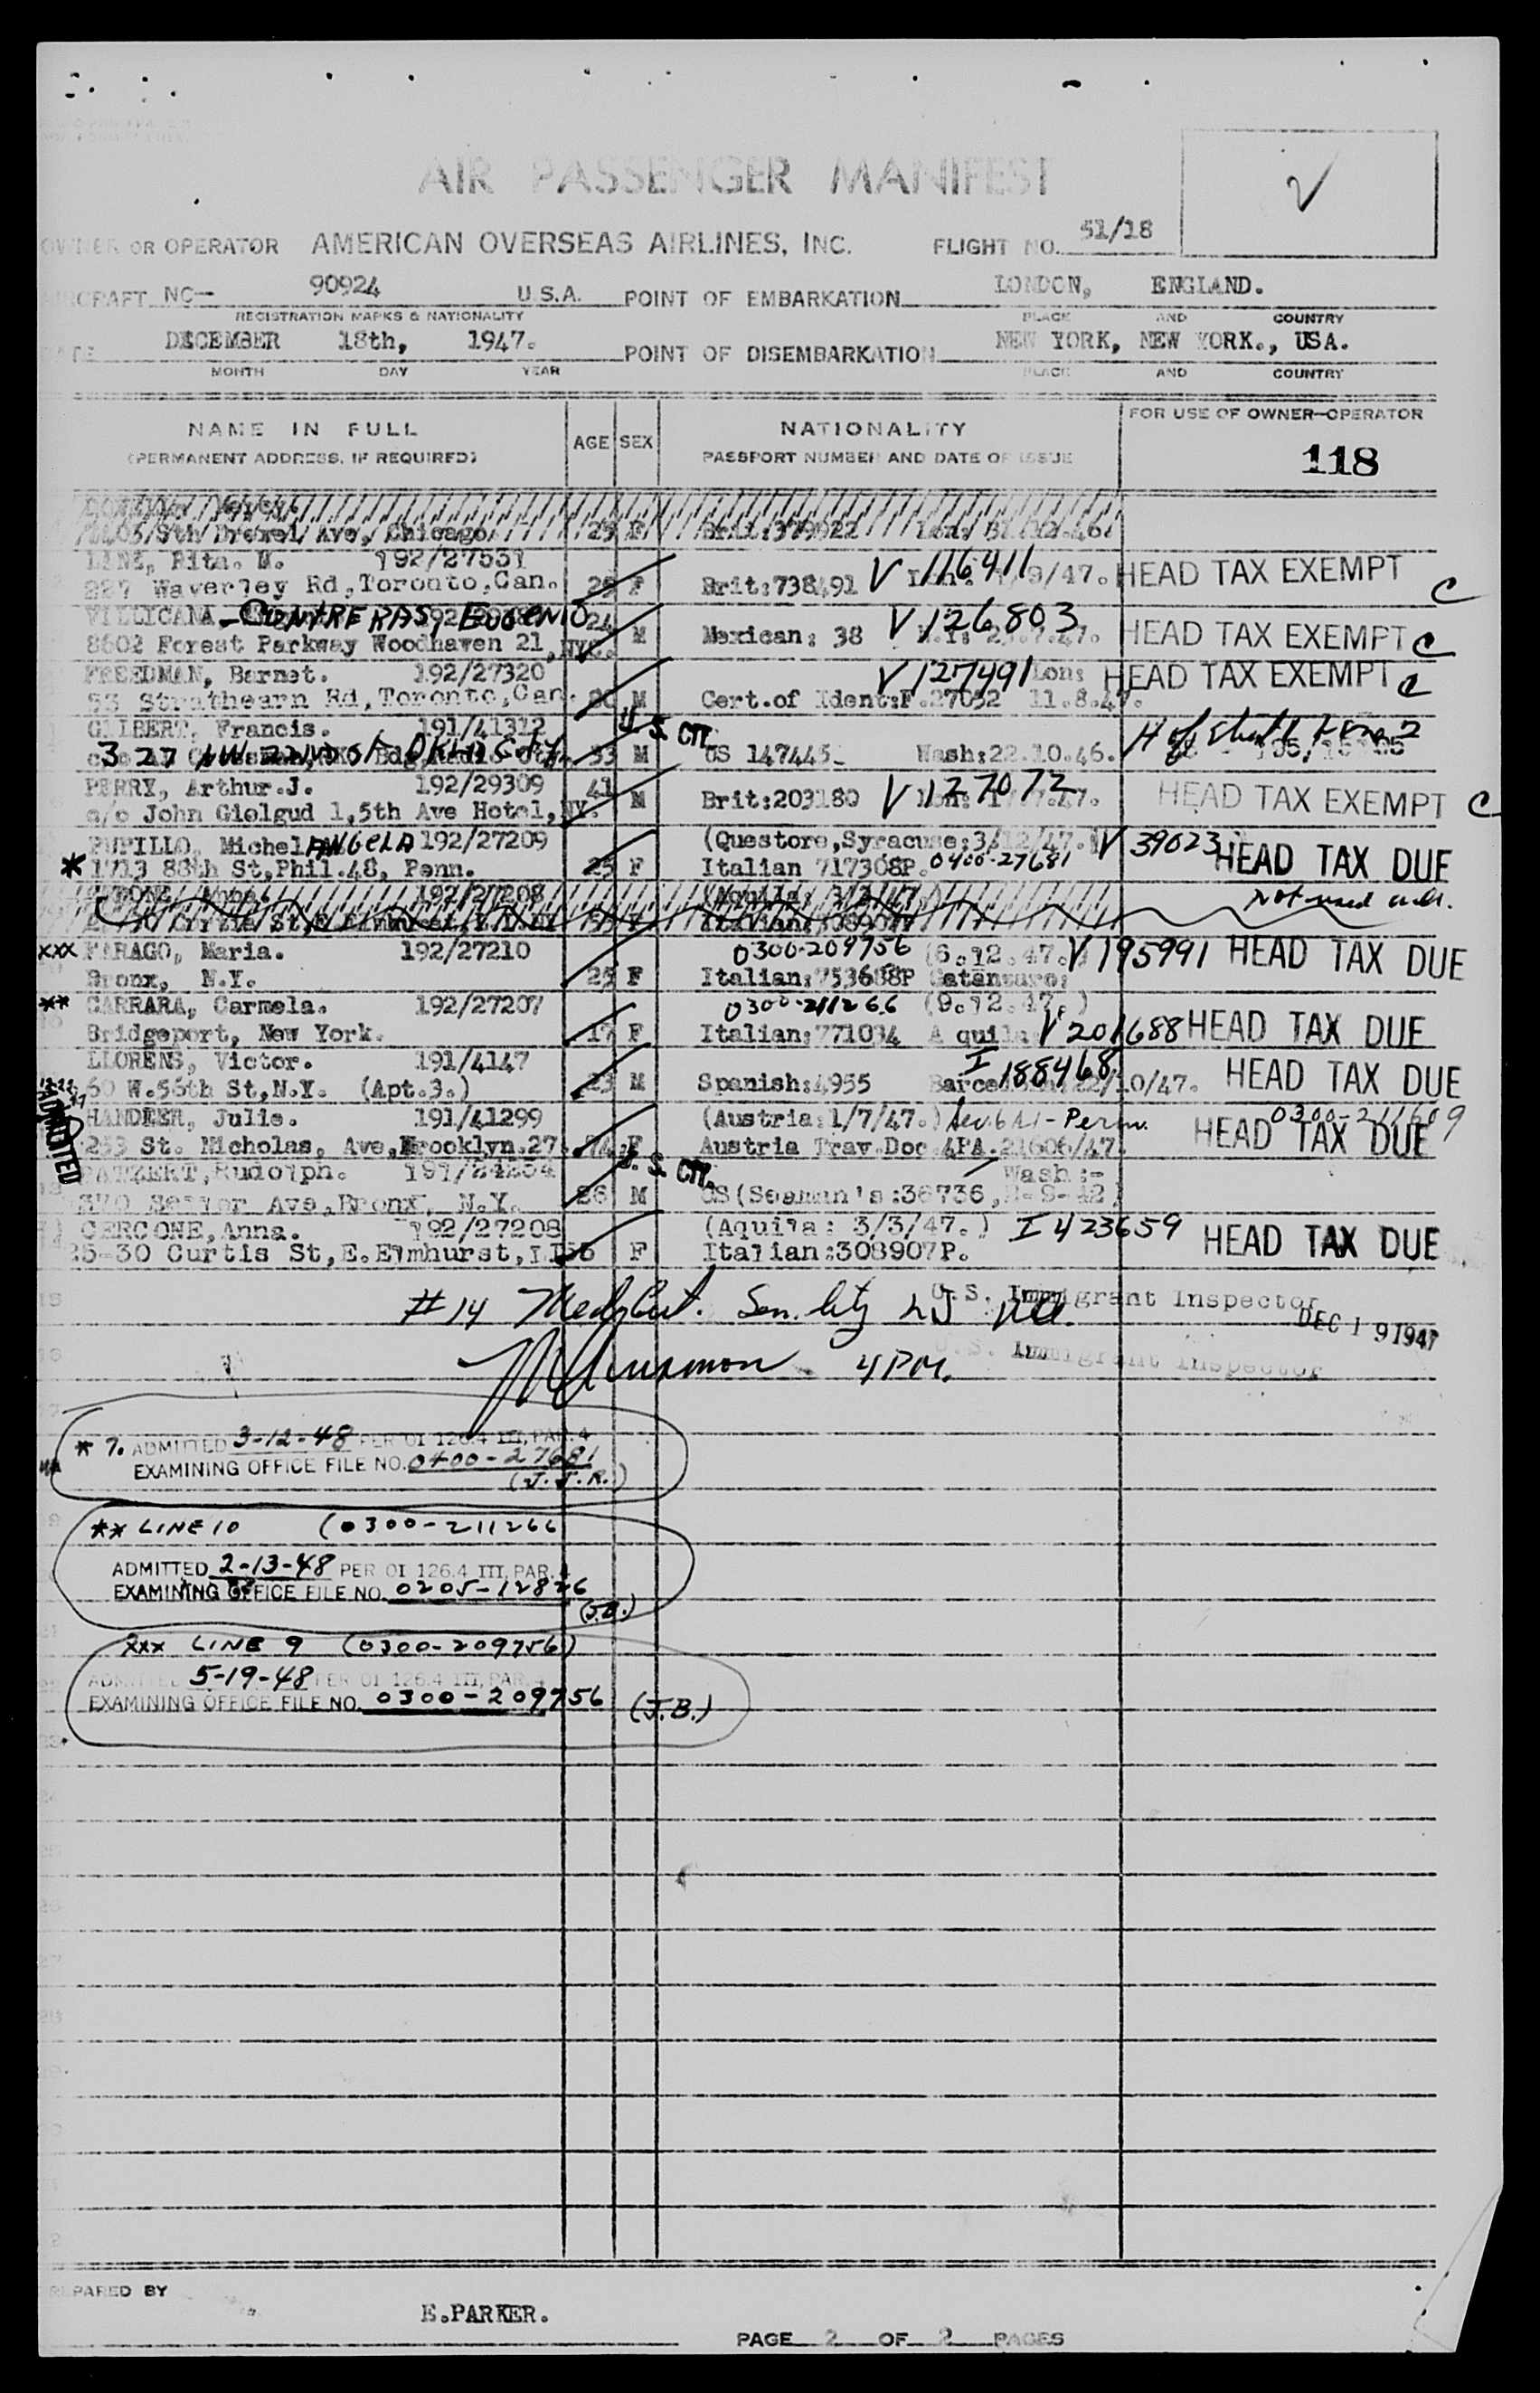 AIR PASSENGER MANIFEST
OWNER OR OPERATOR AMERICAN OVERSEAS AIRLINES, INC. FLIGHT NO. 51/18
AIRCRAFT NC— 90924 U.S.A. POINT OF EMBARKATION LONDON, ENGLAND.
REGISTRATION MARKS & NATIONALITY PLACE AND COUNTRY
DATE DECEMBER 18th, 1947. POINT OF DISEMBARKATION NEW YORK, NEW YORK., USA.
MONTH DAY YEAR PLACE AND COUNTRY
NAME IN FULL AGE SEX NATIONALITY FOR USE OF OWNER-OPERATOR
(PERMANENT ADDRESS, IF REQUIRED) PASSPORT NUMBER AND DATE OF ISSUE 118
Sth Drexel Ave, Chicago 25 F Brit:379922
Rita. M. 192/27531
227 Waverley Rd, Toronto, Can. F Brit:738491 V 116411 9/47. HEAD TAX EXEMPT C
VILLICANA - CONTRERAS, EUGENIO 24
8602 Forest Parkway Woodhaven 21, NYC. M Mexican: 38 V 126,803 HEAD TAX EXEMPT C
FREEDMAN, Barnet. 192/27320 V 127491 Lon: HEAD TAX EXEMPT C
53 Strathearn Rd, Toronto, Can. M Cert.of Ident:F.27052 11.8.47.
GILBERT, Francis. 191/41312 U. S. CIT.
327 NW 22ND ST OKLA City 33 M US 147445 Wash:22.10.46.
PERRY, Arthur.J. 192/29309 41
c/o John Gielgud 1,5th Ave Hotel, NY. M Brit:203180 V 127072 HEAD TAX EXEMPT C
PUPILLO, Michel ANGELA 192/27209 (Questore, Syracuse; 3/12/47. V 39023
* 1713 88th St, Phil.48, Penn. 25 F Italian 717308P. 0400-27681 HEAD TAX DUE
192/27208 (Aquila: 3/3/47) Not used
XXX FARAGO, Maria. 192/27210 0300-209756 (6.12.47. V 195991 HEAD TAX DUE
Bronx, N.Y. 25 F Italian:753688P Catanzaro:
** CARRARA, Carmela. 192/27207 0300-211266 (9.12.47.)
Bridgeport, New York. 17 F Italian:771034 Aquila V 201688 HEAD TAX DUE
LLORENS, Victor. 191/4147 I 188468
60 W.56th St, N.Y. (Apt.3.) 23 M Spanish:4955 /10/47. HEAD TAX DUE
ADMITTED
HANDLER, Julie. 191/41299 (Austria:1/7/47.) 0300-211609
253 St. Nicholas, Ave, Brooklyn.27. 74 F Austria Trav.Doc 4PA.21606/47. HEAD TAX DUE
PATZERT, Rudolph. 191/24254 U. S. CIT. Wash:-
Ave, Bronx, N.Y. 26 M US (Seaman's:36736,
CERCONE, Anna. 192/27208 (Aquila: 3/3/47.) I 423659
25-30 Curtis St, E.Elmhurst, F Italian:308907P. HEAD TAX DUE
#14 Med. Cert. U.S. Immigrant Inspector
DEC 19 1947
4 PM. U.S. Immigrant Inspector
* 7. ADMITTED 3-12-48 PER OI 126.4 III, PAR. 4
EXAMINING OFFICE FILE NO. 0400-27681
(J.J.R.)
** LINE 10 (0300-211266
ADMITTED 2-13-48 PER OI 126.4 III, PAR. 4
EXAMINING OFFICE FILE NO. 0205-12826
(J.B.)
XXX LINE 9 (0300-209756)
ADMITTED 5-19-48 PER OI 126.4 III, PAR.
EXAMINING OFFICE FILE NO. 0300-209756 (J.B.)
PREPARED BY
E.PARKER.
PAGE 2 OF 2 PAGES